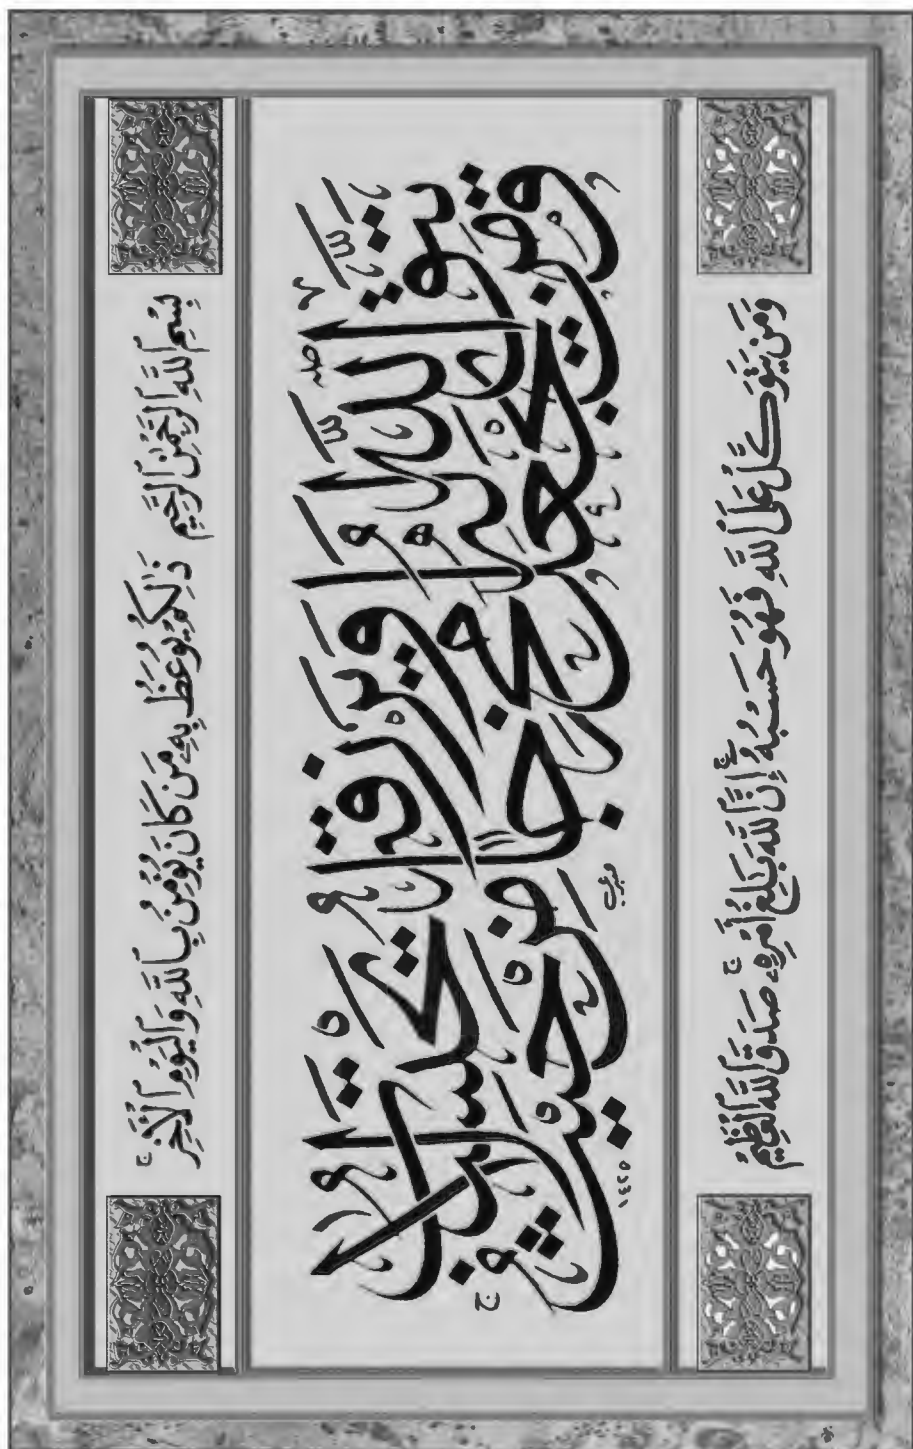 بِسْمِ ٱللَّهِ ٱلرَّحْمَٰنِ ٱلرَّحِيمِ ذَٰلِكُمْ يُوعَظُ بِهِۦ مَن كَانَ يُؤْمِنُ بِٱللَّهِ وَٱلْيَوْمِ ٱلْآخِرِ ۚ
وَمَن يَتَّقِ ٱللَّهَ يَجْعَل لَّهُۥ مَخْرَجًا وَيَرْزُقْهُ مِنْ حَيْثُ لَا يَحْتَسِبُ ۚ
١٤٢٥
وَمَن يَتَوَكَّلْ عَلَى ٱللَّهِ فَهُوَ حَسْبُهُۥٓ ۚ إِنَّ ٱللَّهَ بَٰلِغُ أَمْرِهِۦ ۚ صَدَقَ ٱللَّهُ ٱلْعَظِيمُ